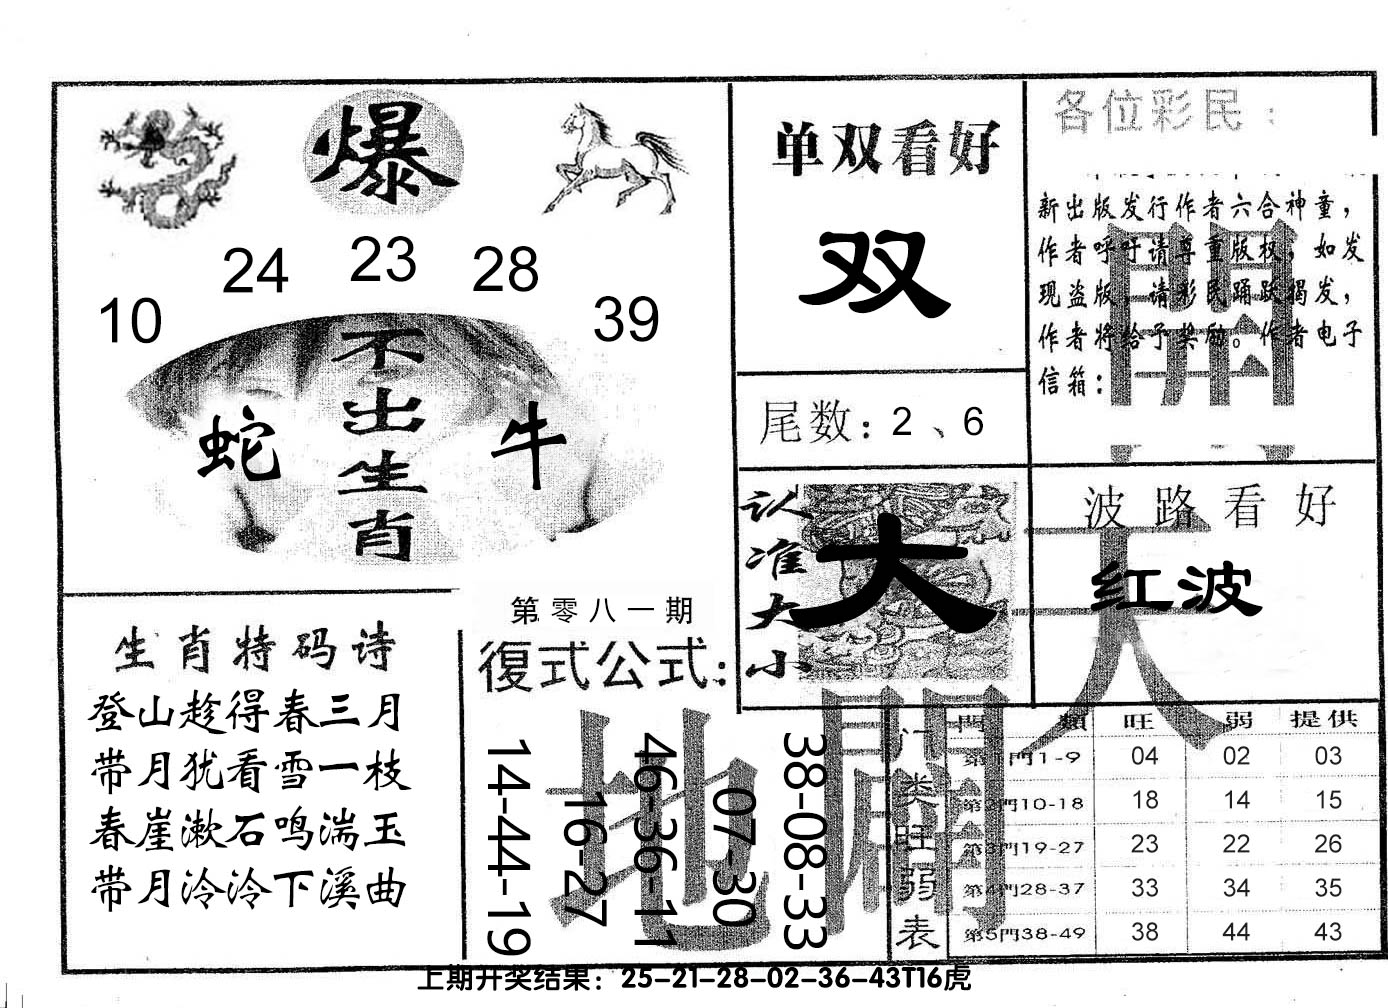 爆
24 23 28
10 39
不出生肖
蛇 牛
单双看好
双
尾数：2、6
各位彩民：
新出版发行作者六合神童，
作者呼吁请尊重版权，如发
现盗版，请彩民踊跃揭发，
作者将给予奖励。作者电子
信箱：
認准大小
大
波路看好
红波
開
天
生肖特码诗
登山趁得春三月
带月犹看雪一枝
春崖漱石鸣湍玉
带月泠泠下溪曲
第零八一期
復式公式：
14-44-19
16-27
46-36-11
07-30
38-08-33
地
開
门类旺弱表
門類 旺 弱 提供
第1門1-9 04 02 03
第2門10-18 18 14 15
第3門19-27 23 22 26
第4門28-37 33 34 35
第5門38-49 38 44 43
上期开奖结果：25-21-28-02-36-43T16虎